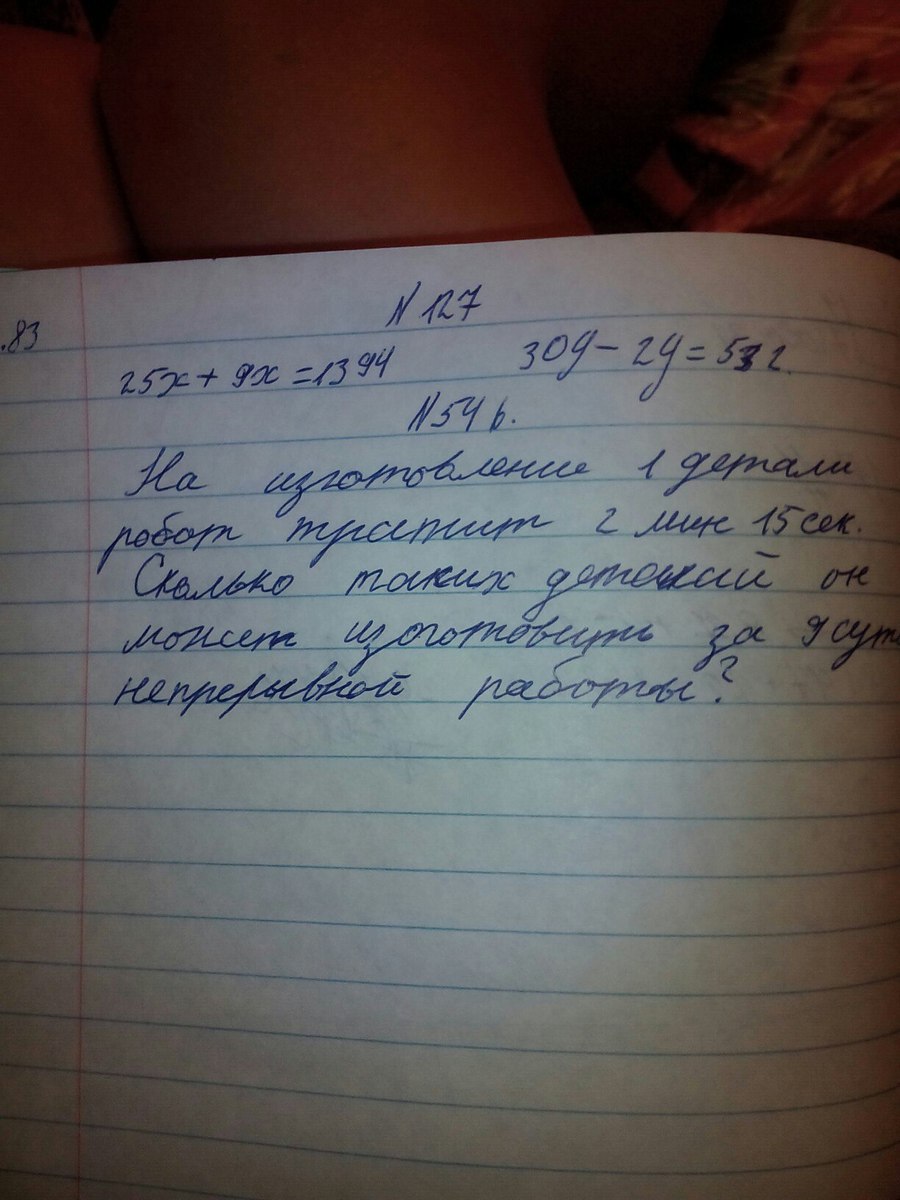 N 127
.83
25x + 9x = 1394 30y - 2y = 532.
N 54 б.
На изготовление 1 детали
робот тратит 2 мин 15 сек.
Сколько таких деталий он
может изготовить за 9 сут
непрерывной работы?